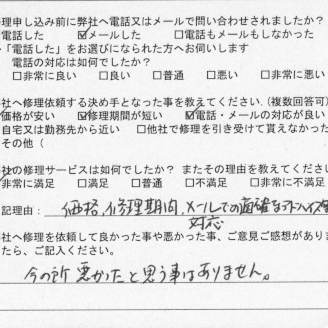 修理申し込み前に弊社へ電話又はメールで問い合わせされましたか?
電話した ☑メールした □電話もメールもしなかった
「電話した」をお選びになられた方へお伺いします
電話の対応は如何でしたか?
□非常に良い □良い □普通 □悪い □非常に悪い
社へ修理依頼する決め手となった事を教えてください。(複数回答可)
価格が安い ☑修理期間が短い ☑電話・メールの対応が良い
自宅又は勤務先から近い □他社で修理を引き受けて貰えなかった
その他(
社の修理サービスは如何でしたか? またその理由を教えてください
非常に満足 □満足 □普通 □不満足 □非常に不満
記理由: 価格、修理期間、メールでの適確なアドバイス
対応
社へ修理を依頼して良かった事や悪かった事、ご意見ご感想があり
たら、ご記入ください。
今の所悪かったと思う事はありません。